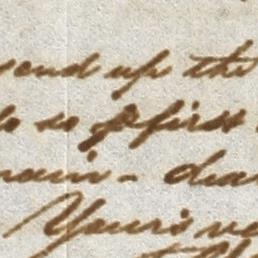 send up the
do so first
main - dear
Yours ve